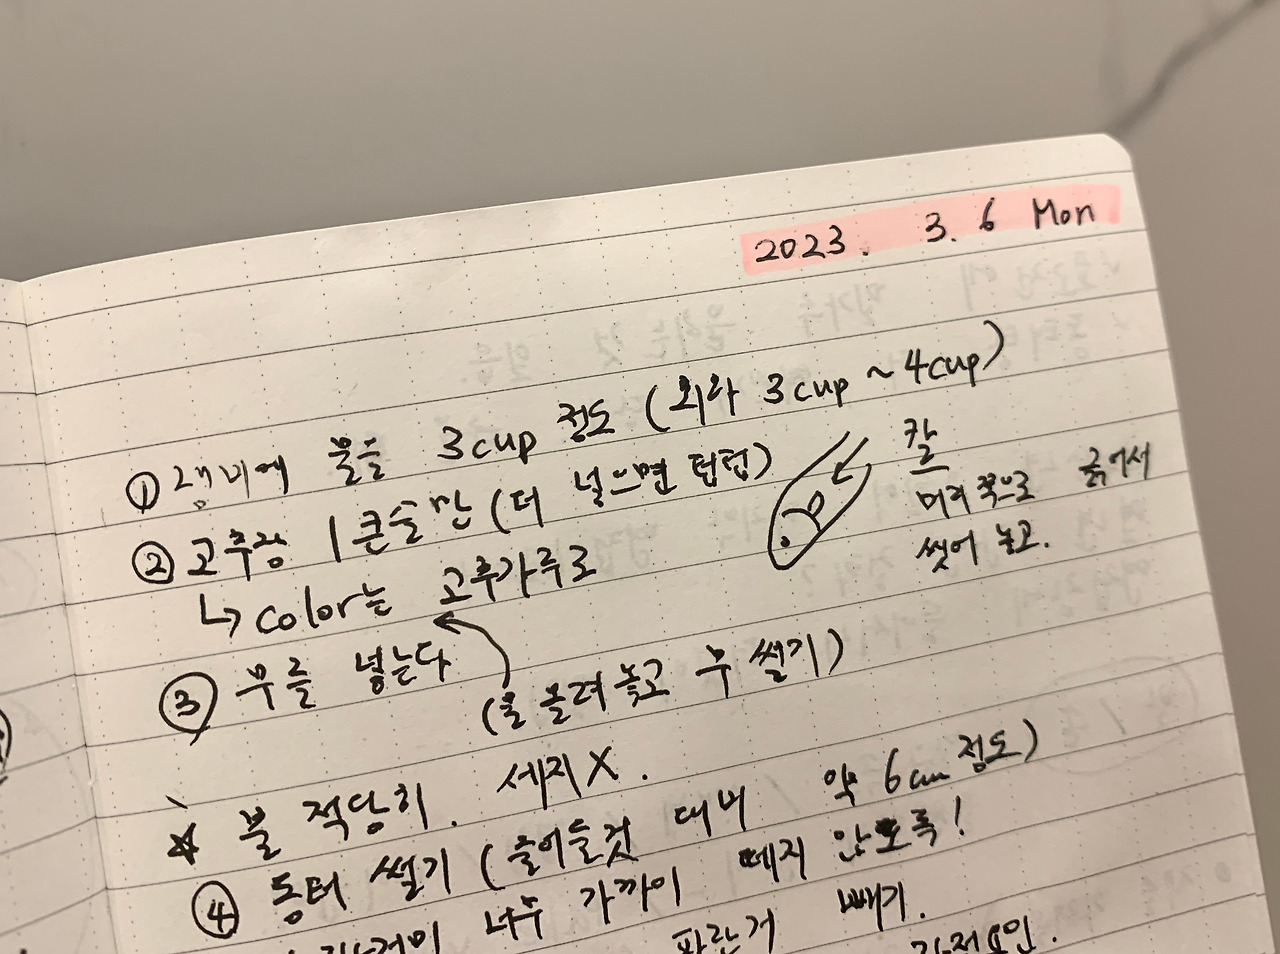 2023. 3. 6 Mon
① 냄비에 물을 3cup 정도 ( 3cup ~ 4cup)
② 고추장 1큰술만 (더 넣으면 텁텁)
↳ color는 고추가루로
칼
머리쪽으로 긁어서
씻어 놓고.
③ 무를 넣는다
(물 올려놓고 무 썰기)
☆ 불 적당히. 세지X.
④ 동태 썰기 (줄어들것 대비 약 6cm 정도)
너무 가까이 떼지 않도록!
파란거 빼기.